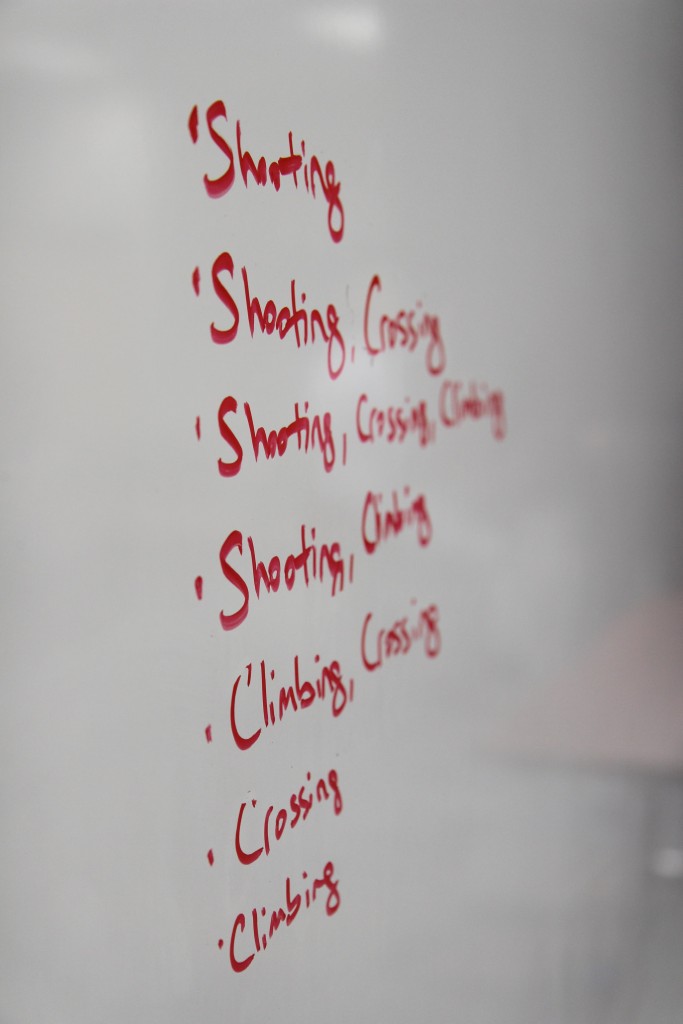 · Shooting
· Shooting, Crossing
· Shooting, Crossing, Climbing
· Shooting, Climbing
· Climbing, Crossing
· Crossing
· Climbing